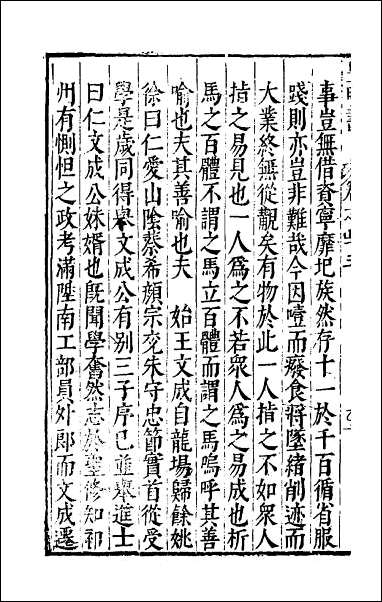 事豈無借資寧靡圯族然存十一於千百循省服
踐則亦豈非難哉今因噎而癈食將墜緒削迹而
大業終無從觀矣有物於此一人指之不如衆人
指之易見也一人爲之不若衆人爲之易成也析
馬之百體不謂之馬立百體而謂之馬嗚呼其善
喻也夫其善喻也夫　始王文成自龍場歸餘姚
徐曰仁愛山陰蔡希顔宗兖朱守忠節實首從受
學是歲同得舉文成公有别三子序已並舉進士
曰仁文成公妹婿也旣聞學奮然志於聖修知祁
州有惻怛之政考滿陞南工部員外郎而文成遷